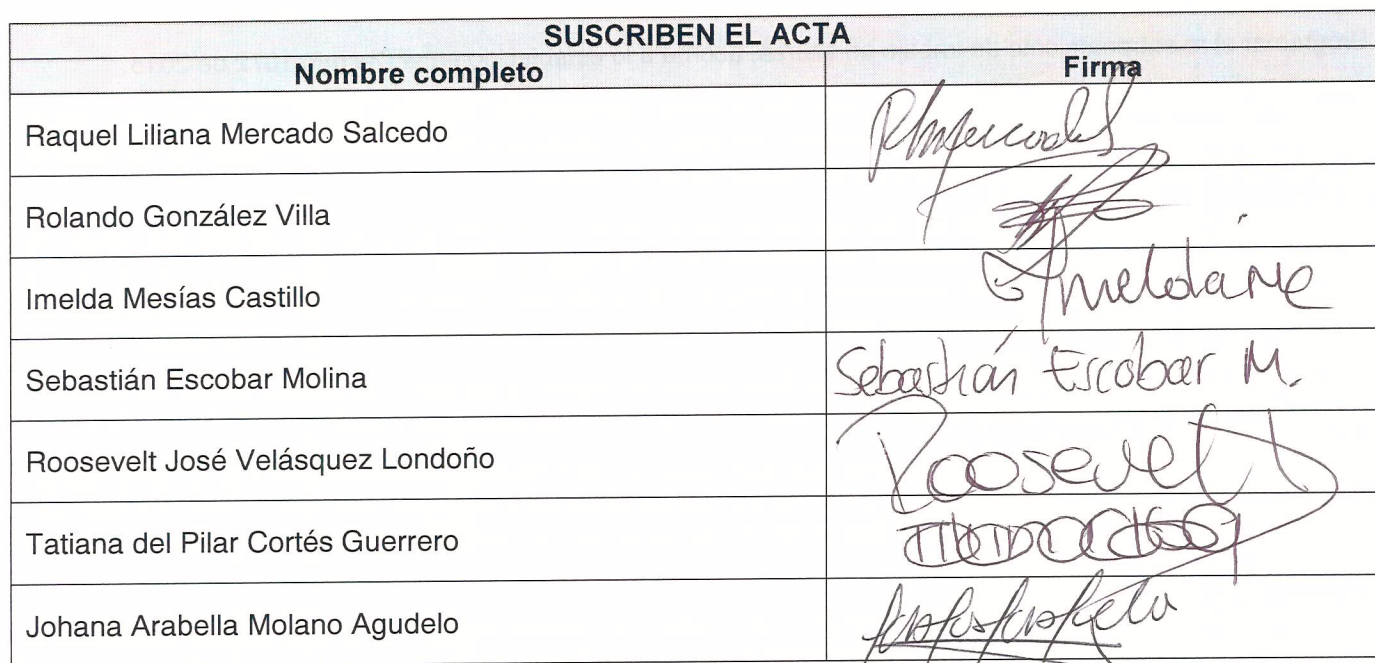 SUSCRIBEN EL ACTA
Nombre completo Firma
Raquel Liliana Mercado Salcedo
Rolando González Villa
Imelda Mesías Castillo
Sebastián Escobar Molina Sebastián Escobar M.
Roosevelt José Velásquez Londoño Roosevelt
Tatiana del Pilar Cortés Guerrero
Johana Arabella Molano Agudelo